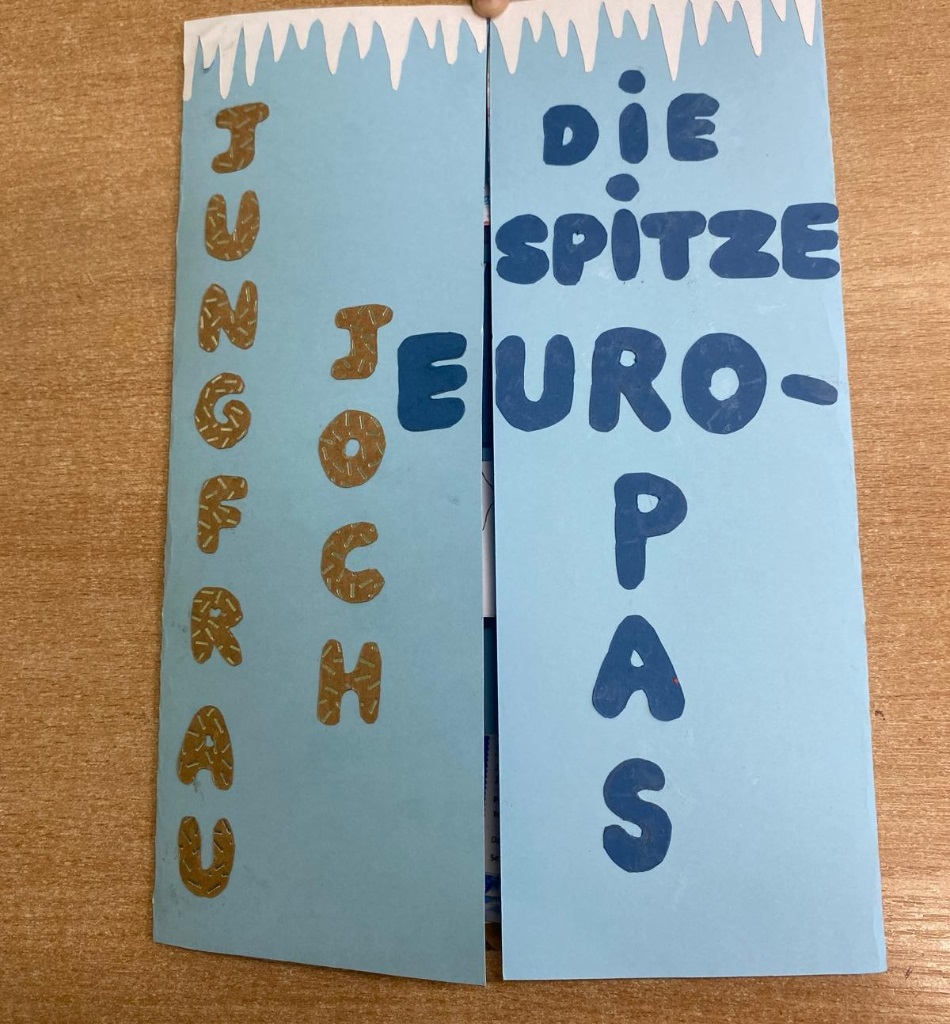 JUNGFRAU
JOCH
DiE
SPiTZE
EURO-
PAS